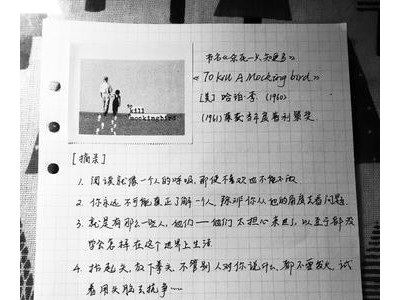 书名《杀死一只知更鸟》
《To Kill A Mocking bird》
[美] 哈珀·李 (1960)
(1961) 荣获当年度普利策奖
to
kill
mockingbird
[摘录]
1. 阅读就像一个人的呼吸,即使不喜欢也不能不做
2. 你永远不可能真正了解一个人,除非你从他的角度去看问题.
3. 就是有那么一些人,他们——他们太担心来世了,以至于都没
学会怎样在这个世界上生活
4. 抬起头,放下拳头,不管别人对你说什么,都不要发火,试
着用头脑去抗争……